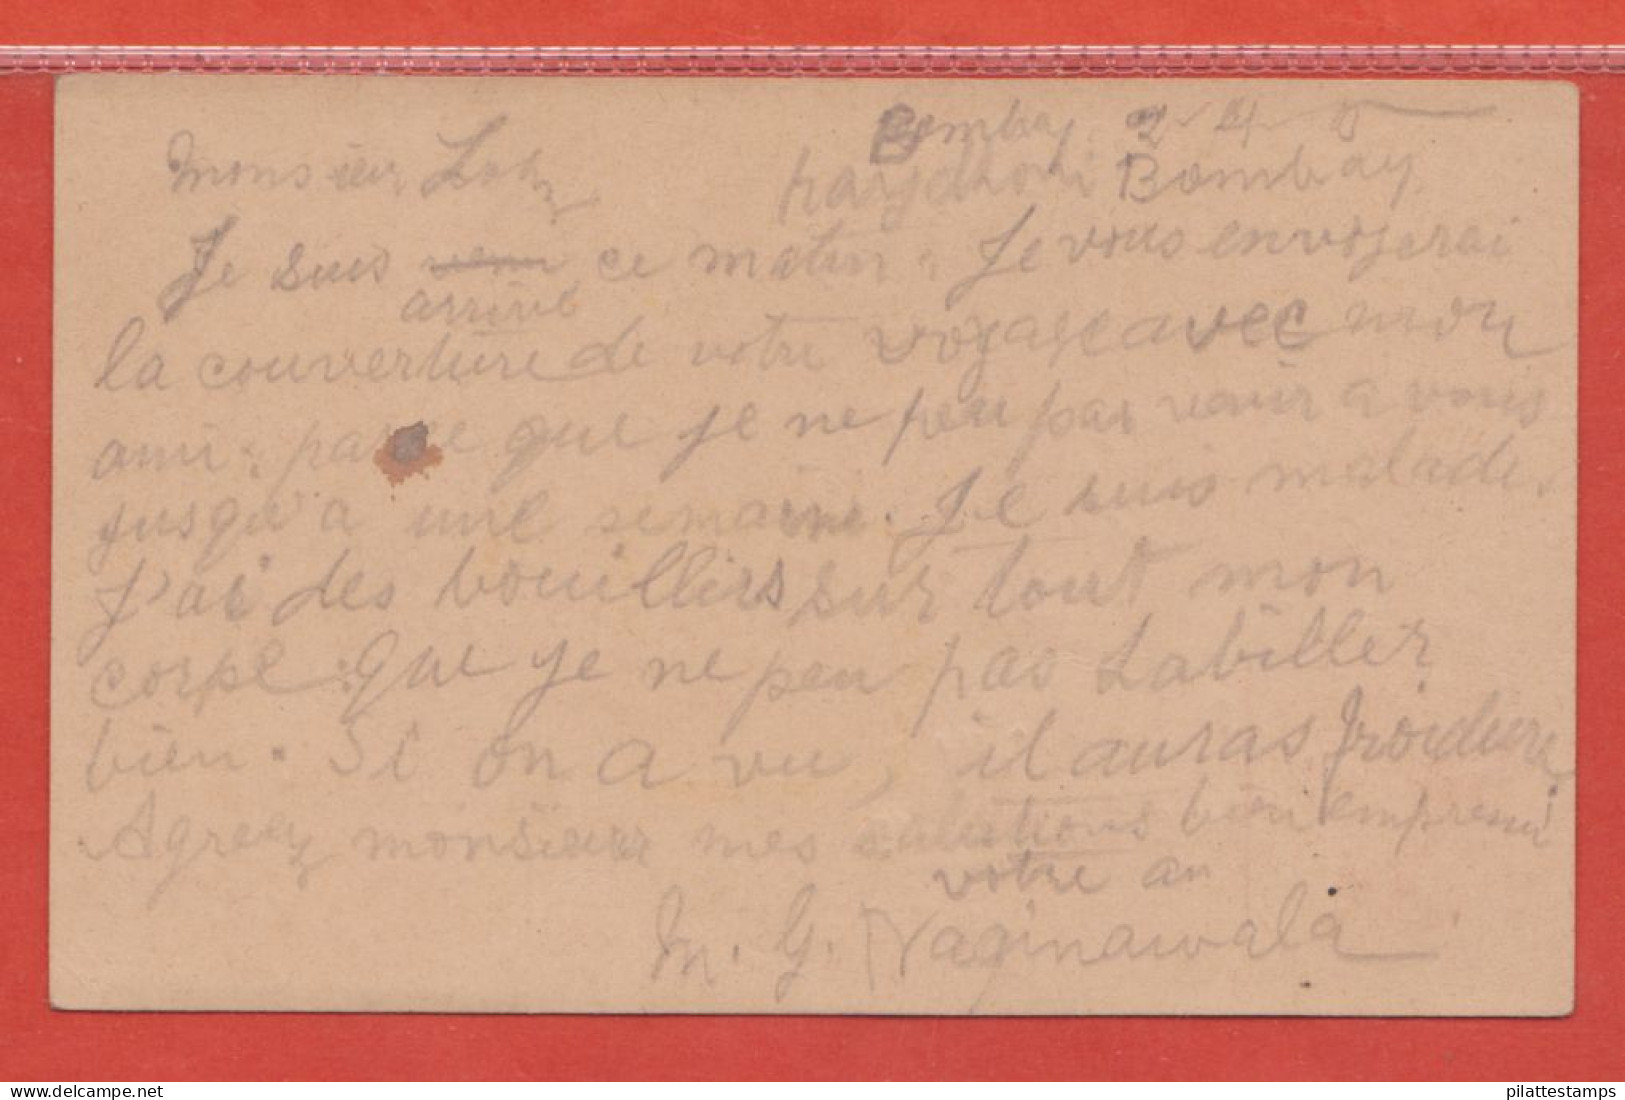 Bombay 2-4-
Bombay
Monsieur
Je suis ce matin. Je vous envojerai
arrivé
la couverture de votre voyage avec mon
ami. parce que je ne peu pas venir a vous
jusqu'a une semaine. Je suis malade.
J'ai des bouilliers sur tout mon
corpe. que je ne peu pas habiller
bien. Si on a vu, il auras froidure
Agreez monsieur mes salutations bien empressi
votre am
M. G. Naginawala
delcampe.net
pilattestamps